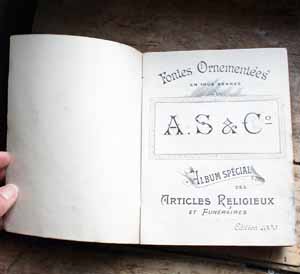 Fontes Ornementées
EN TOUS GENRES
A. S & Cº
ALBUM SPÉCIAL
DES
ARTICLES RELIGIEUX
ET FUNÉRAIRES
Edition